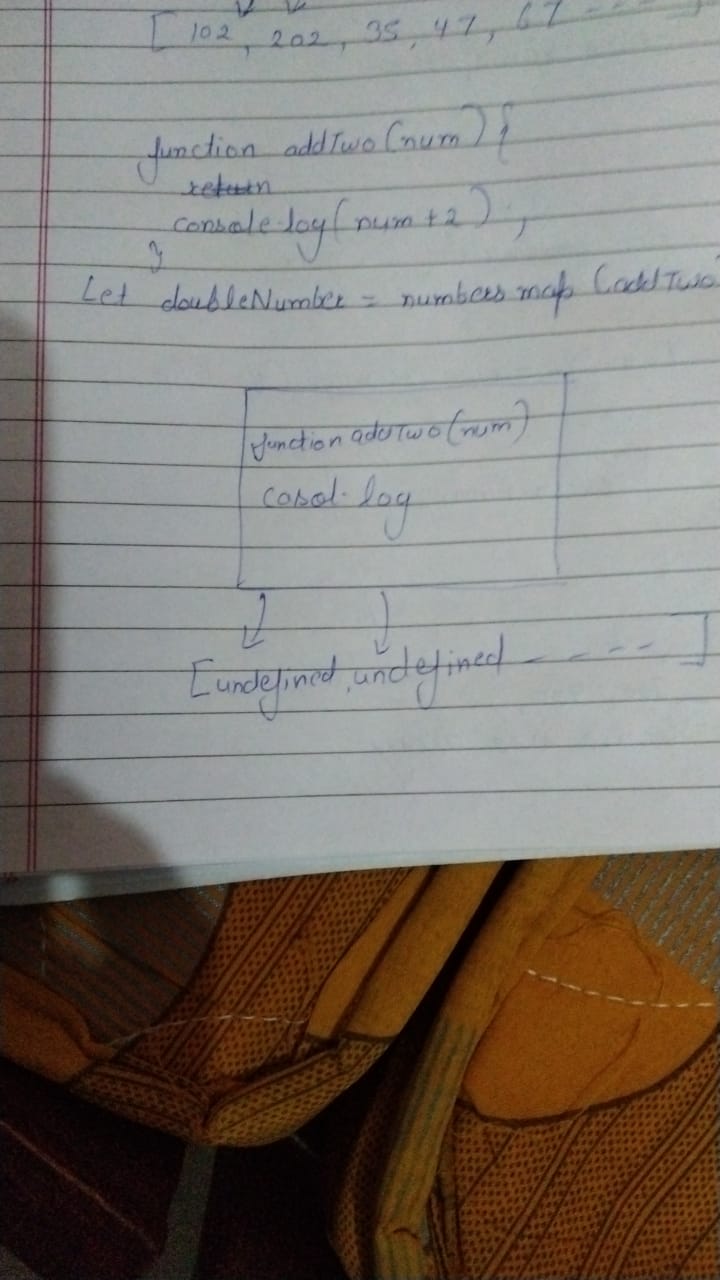 [ 102, 202, 35, 47, 67 - - - -
function addTwo (num) {
return
console.log( num + 2 ) ;
}
Let doubleNumber = numbers map (addTwo
function addTwo (num)
cosol. log
[undefined, undefined - - - - - ]